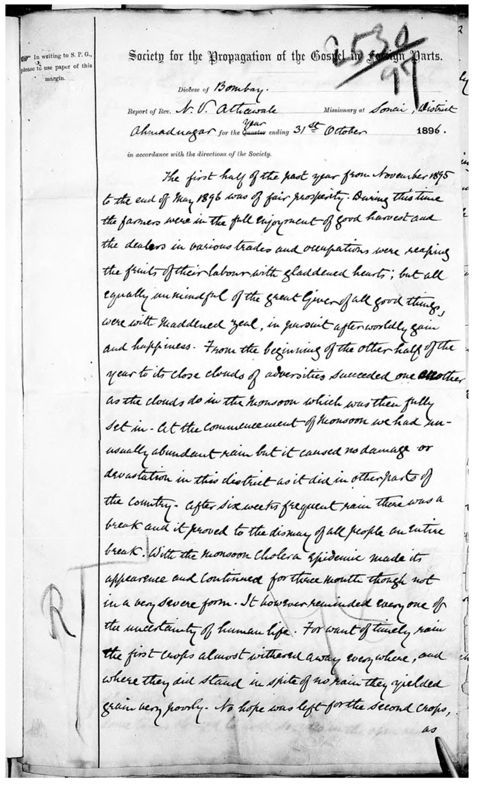 In writing to S. P. G.,
please to use paper of this
margin.
Society for the Propagation of the Gospel in Foreign Parts.
2530
97
Diocese of Bombay.
Report of Rev. N. V. Athawale Missionary at Sonai, District
Ahmadnagar for the Quarter Year ending 31st October 1896.
in accordance with the directions of the Society.
The first half of the past year from November 1895
to the end of May 1896 was of fair prosperity. During this time
the farmers were in the full enjoyment of good harvest and
the dealers in various trades and occupations were reaping
the fruits of their labour with gladdened hearts; but all
equally unmindful of the great Giver of all good things,
were with maddened zeal, in pursuit after worldly gain
and happiness. From the beginning of the other half of the
year to its close clouds of adversities succeeded one another
as the clouds do in the Monsoon which was then fully
set in. At the commencement of Monsoon we had un-
usually abundant rain but it caused no damage or
devastation in this district as it did in other parts of
the country. After six weeks frequent rain there was a
break and it proved to the dismay of all people an entire
break. With the monsoon Cholera Epidemic made its
appearence and continued for three month though not
in a very severe form. It however reminded every one of
the uncertainty of human life. For want of timely rain
the first crops almost withered away everywhere, and
where they did stand in spite of no rain they yielded
grain very poorly. No hope was left for the second crops,
as